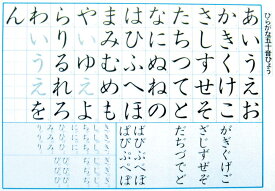 ひらがな五十音ひょう
あいうえお
かきくけこ
さしすせそ
たちつてと
なにぬねの
はひふへほ
まみむめも
やいゆえよ
らりるれろ
わいうえを
ん
がぎぐげご
ざじずぜぞ
だぢづでど
ばびぶべぼ
ぱぴぷぺぽ